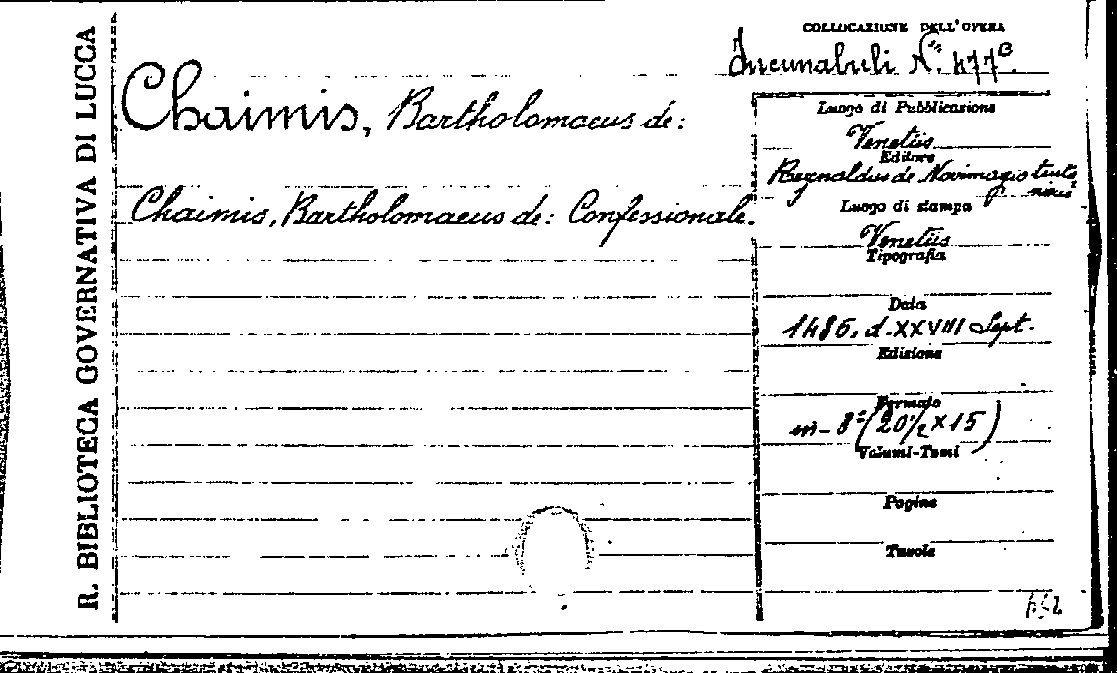 R. BIBLIOTECA GOVERNATIVA DI LUCCA
COLLOCAZIONE DELL'OPERA
Incunabuli N.º 477B
Chaimis, Bartholomaeus de:
Chaimis, Bartholomaeus de: Confessionale.
Luogo di Pubblicazione
Venetiis
Editore
Reynaldus de Novimagio
Luogo di stampa
Venetiis
Tipografia
Data
1486. d. XXVIII Sept.
Edizione
Formato
in-8º (20½ × 15)
Volumi-Tomi
Pagine
Tavole